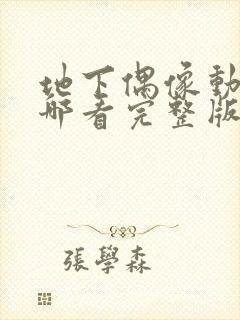 地下偶像動
哪看完整版
張學森